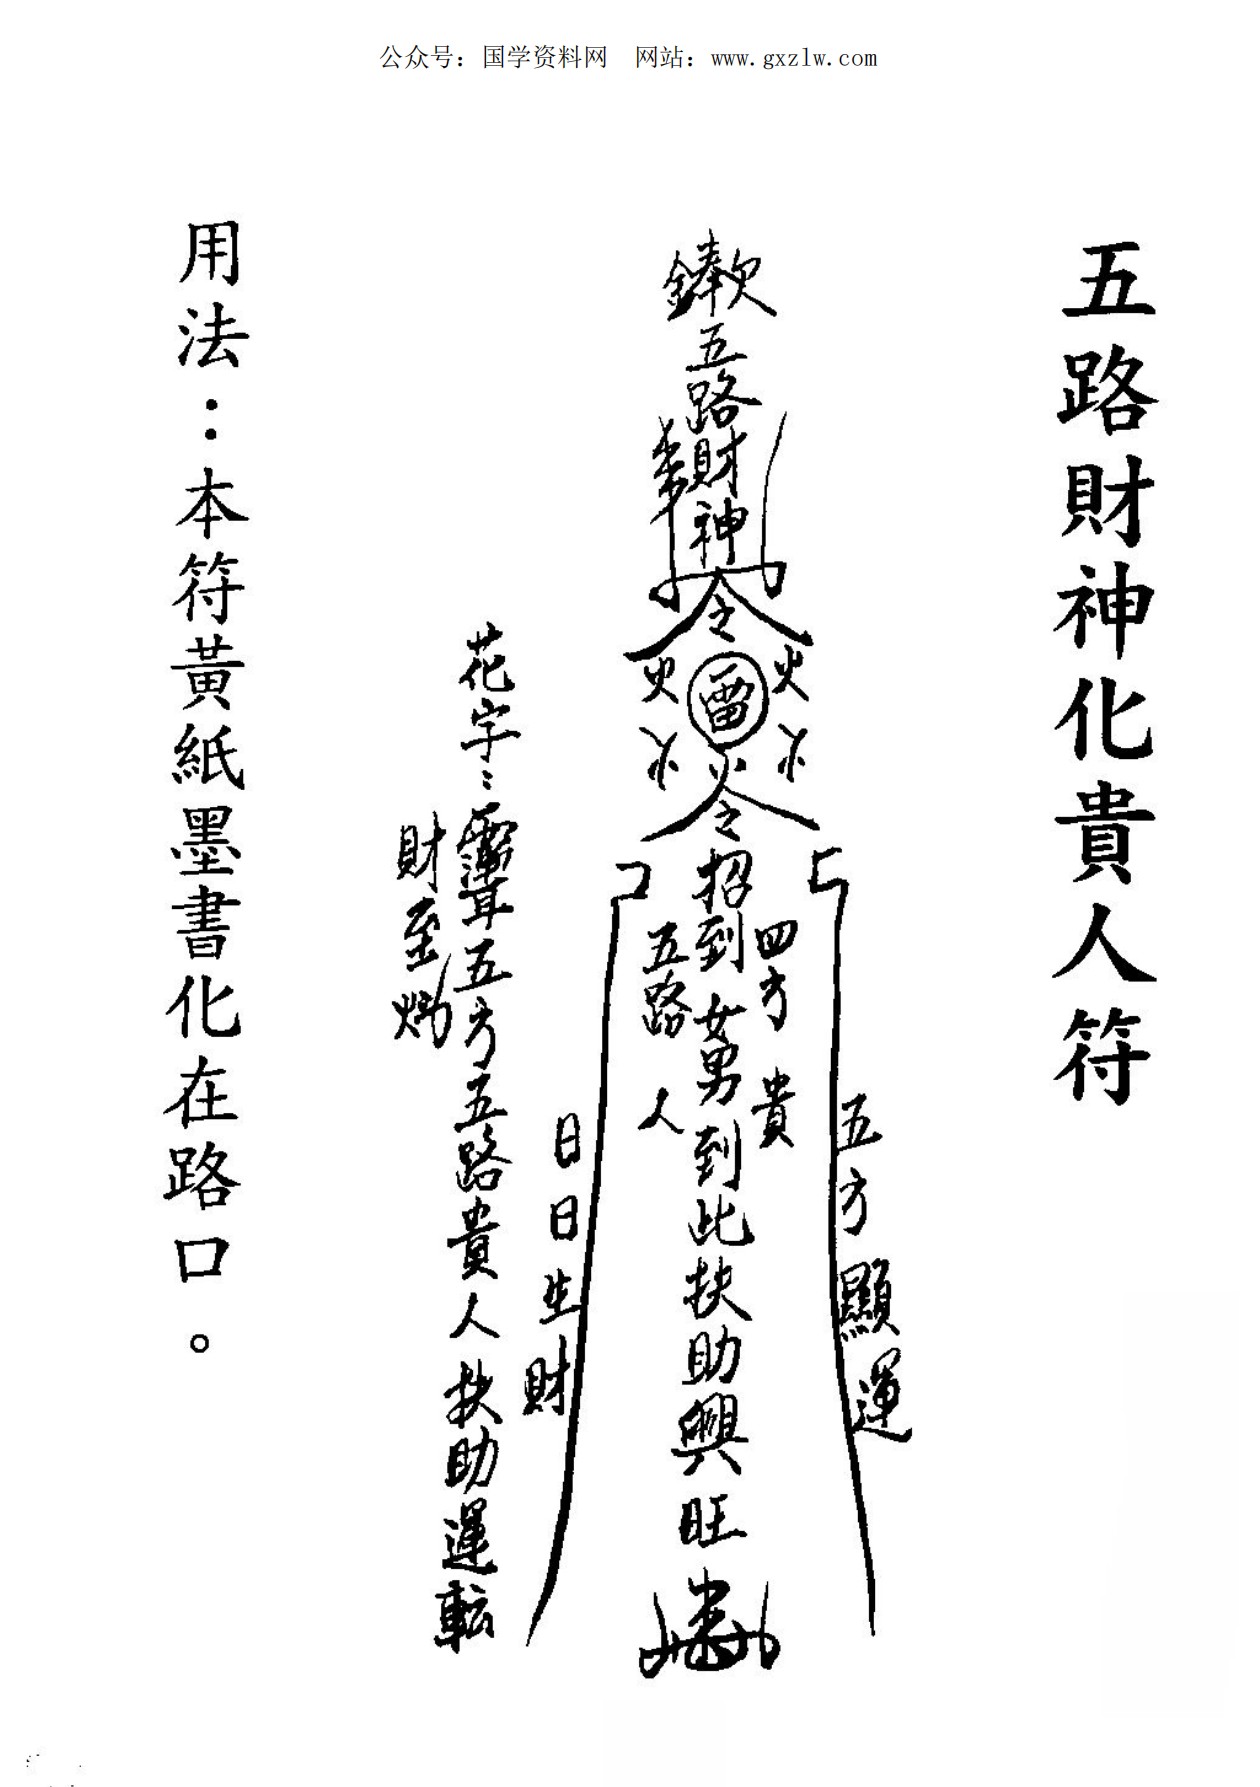 公众号：国学资料网　网站：www.gxzlw.com
五路財神化貴人符
欽奉
五路財神
令
火　火
雷
令
招到女男到此扶助興旺
四方貴
五路人
五方顯運
日日生財
花字：
五方五路貴人扶助運転
財至
用法：本符黃紙墨書化在路口。